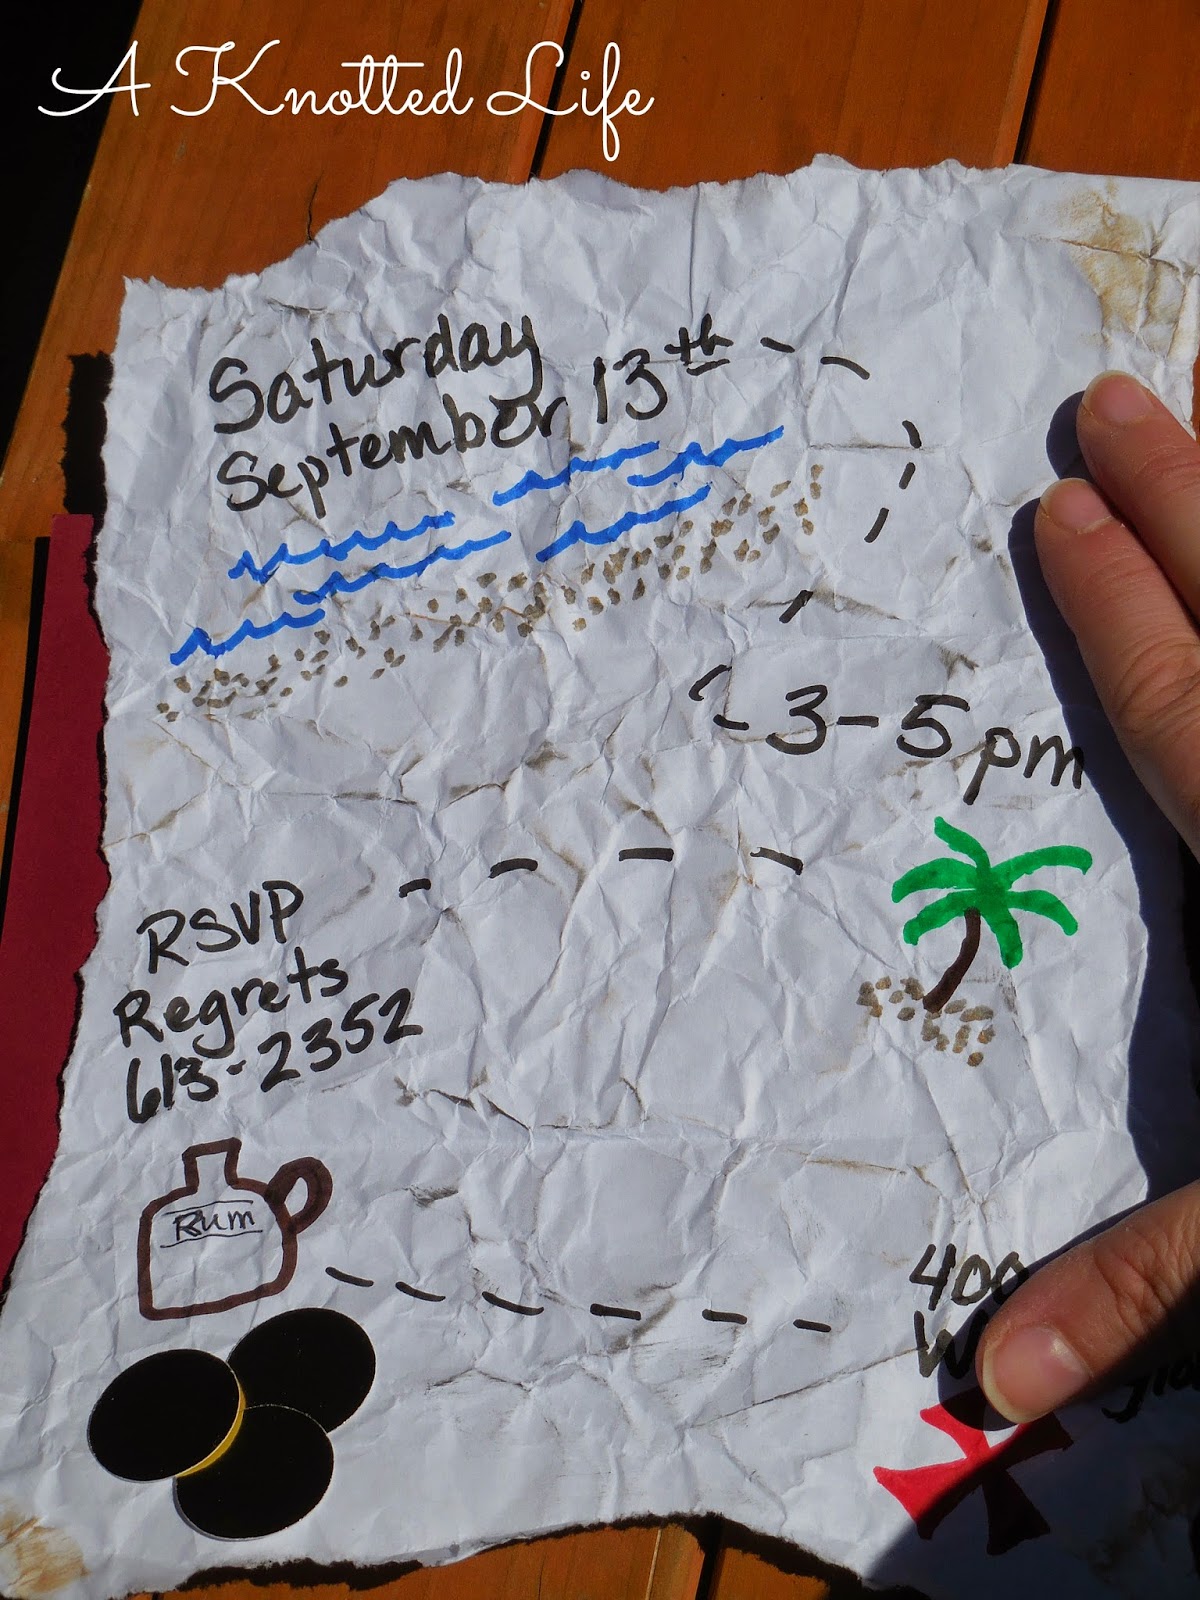 A Knotted Life
Saturday
September 13th
3-5pm
RSVP
Regrets
613-2352
Rum
400